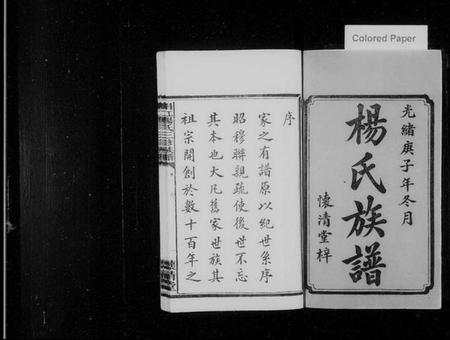 Colored Paper
光緒庚子年冬月
楊氏族譜
懷清堂梓
序
家之有譜原以紀世系序
昭穆聯親疏使後世不忘
其本也大凡舊家世族其
祖宗開創於數十百年之